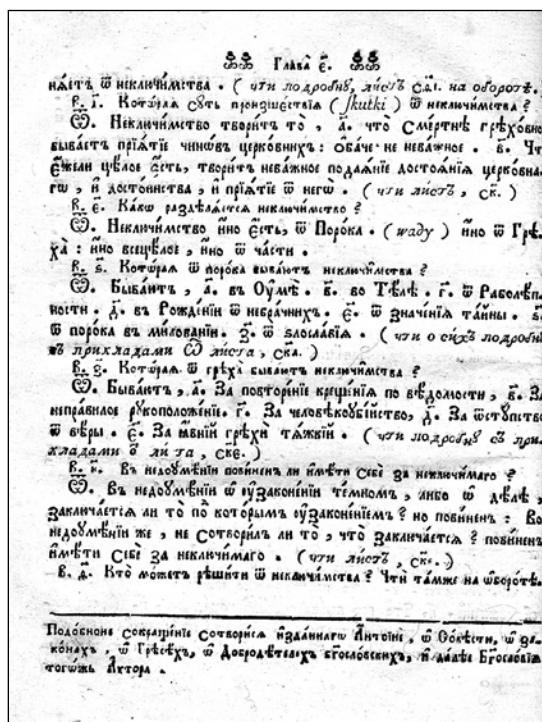 Глава̀ є҃.
нѧ́єтъ ѿ неключи́мства . ( чти подробну, ли́стъ сѯі. на оборо́тѣ.
В. г҃. Кото́раѧ су́ть произше́ствїѧ ( skutki ) ѿ неключи́мства ?
Ѿ. Неключи́мство твори́тъ то̀ , а҃. что̀ Сме́ртнѣ грѣхо́вно
быва́єтъ прїѧ́тїє чинѡ́въ церко́вныхъ : Оба́че не нева́жное . в҃. Что
є́жели цѣ́лоє є́сть, твори́тъ нева́жное подаѧ́нїє достоѧ́нїѧ церко́вна-
гѡ , и҆ досто́инства , и҆ прїѧ́тїє ѿ негѡ̀ . ( чти ли́стъ , ск. )
В. є҃. Ка́кѡ раздѣлѧ́єтсѧ неключи́мство ?
Ѿ. Неключи́мство и҆́но є́сть, ѿ Поро́ка . ( wady ) и҆́но ѿ Грѣ-
ха̀ : и҆́но всецѣ́лоє , и҆́но ѿ ча́сти .
В. ѕ҃. Кото́раѧ ѿ поро́ка быва́ютъ неключи́мства ?
Ѿ. Быва́ютъ , а҃. въ Оу҆мѣ̀ . в҃. во Тѣ́лѣ . г҃. ѿ Раболѣ́п-
ности . д҃. въ Рожде́нїи небра́чныхъ . є҃. ѿ Значе́нїѧ та́йны . ѕ҃.
ѿ порока въ милова́нїи . з҃. ѿ злосла́вїѧ . ( чти о си́хъ подро́бну
съ прикла́дами Ѿ листа , ска. )
В. з҃. Кото́раѧ ѿ грѣха̀ быва́ютъ неключи́мства ?
Ѿ. Быва́ютъ , а҃. За повторе́нїє креще́нїѧ по вѣ́домости , в҃. За
непра́вилноє рукоположе́нїє. г҃. За человѣкоуби́йство, д҃. За ѿступство
ѿ вѣ́ры . є҃. За ꙗ҆́внїи грѣхѝ тѧ́жкїи . ( чти подро́бну съ при-
кла́дами ѿ листа , скє. )
В. и҃. Въ недоумѣ́нїи пови́ненъ ли и҆мѣ́ти Себѐ за неключи́маго ?
Ѿ. Въ недоумѣ́нїи ѡ҆ оу҆законе́нїи те́мномъ , а́либо ѡ҆ дѣ́лѣ ,
заключа́єтсѧ ли то̀ по кото́рымъ оу҆законе́нїемъ ? но пови́ненъ : Во
недоумѣ́нїи же , не сотвори́лъ ли то̀ , что̀ заключа́єтсѧ ? пови́ненъ
и҆мѣ́ти Себѐ за неключи́маго . ( чти ли́стъ , скє. )
В. д҃. Кто̀ мо́жетъ рѣши́ти ѿ неключи́мства ? Чтѝ та́мже на ѡ҆боро́тѣ.
Подо́бноне сокраще́нїє сотвори́сѧ и҆зда́ннагѡ А҆нто́инє , ѡ҆ Со́вѣсти, ѡ҆ за-
ко́нахъ , ѡ҆ Грѣсѣ́хъ, ѡ҆ Добродѣ́телехъ Бг҃осло́вскихъ, и҆ да́лѣе Бг҃осло́вїѧ
того́жъ А҆́втора .